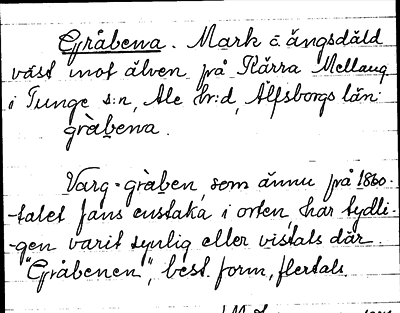 Gråbena. Mark å ängsdåld
väst mot älven på Kärra Mellaug
i Tunge s:n, Ale hr:d, Älfsborgs län:
gràbena.
Varg-gràben, som ännu på 1860-
-talet fans enstaka i orten, har tydli-
-gen varit synlig eller vistats där.
"Gråbenen", best. form, flertals.